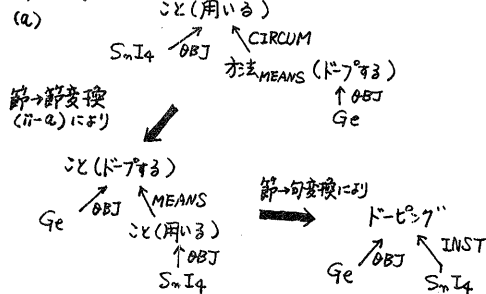 (a)
こと(用いる)
SnI4 OBJ
CIRCUM
方法MEANS (ドープする)
OBJ
Ge
節→節変換
(ii-a)により
こと(ドープする)
Ge OBJ
MEANS
こと(用いる)
OBJ
SnI4
節→句変換により
ドーピング
Ge OBJ
INST
SnI4